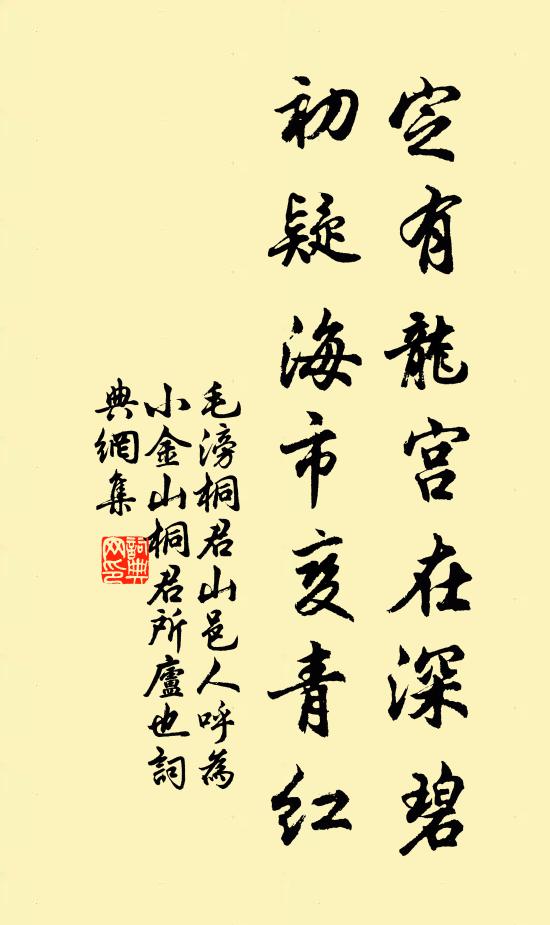 定有龍宮在深碧
初疑海市变青紅
毛滂桐君山邑人呼為
小金山桐君所廬也詞
典網集
詞典网印